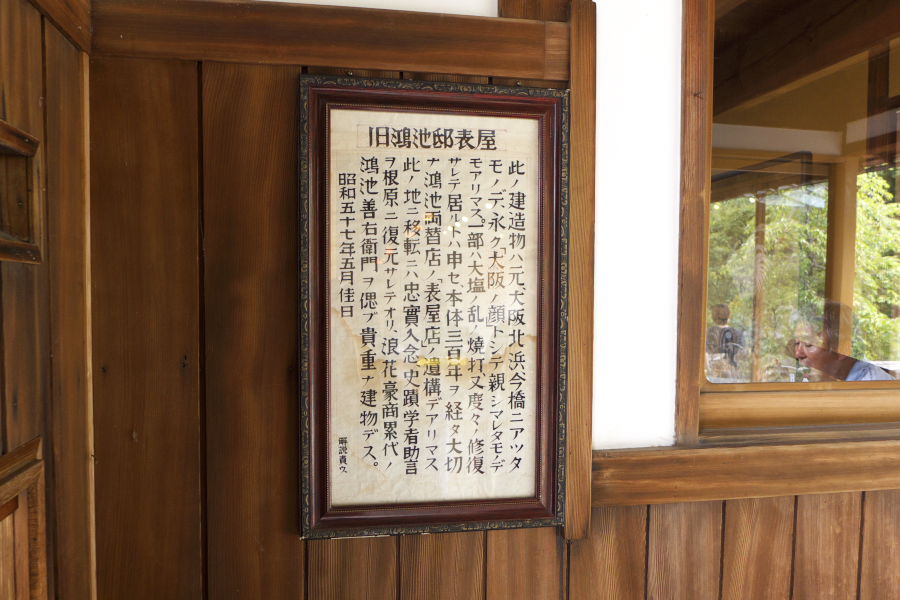 旧鴻池邸表屋
此ノ建造物ハ元、大阪北浜今橋ニアツタ
モノデ永ク「大阪ノ顔トシテ親シマレタモノデ
モアリマス。一部ハ大塩ノ乱ノ燒打又度々ノ修復
サレテ居ルトハ申セ、本体三百年ヲ経タ大切
ナ鴻池両替店ノ「表屋店ノ遺構デアリマス
此ノ地ニ移転ニハ忠實入念、史蹟学者助言
ヲ根原ニ復元サレテオリ、浪花豪商累代ノ
鴻池善右衛門ヲ偲ブ貴重ナ建物デス。
昭和五十七年五月佳日
解説責久